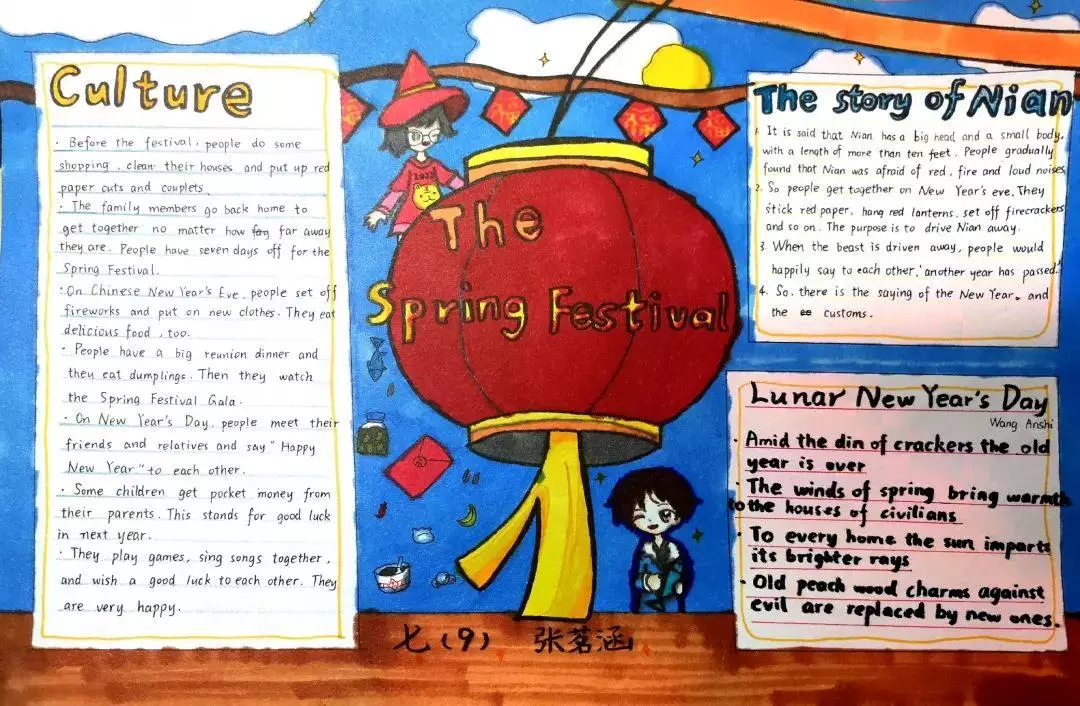 Culture
· Before the festival, people do some
shopping, clean their houses and put up red
paper cuts and couplets.
· The family members go back home to
get together no matter how far away
they are. People have seven days off for the
Spring Festival.
· On Chinese New Year's Eve, people set off
fireworks and put on new clothes. They eat
delicious food, too.
· People have a big reunion dinner and
they eat dumplings. Then they watch
the Spring Festival Gala.
· On New Year's Day, people meet their
friends and relatives and say "Happy
New Year" to each other.
· Some children get pocket money from
their parents. This stands for good luck
in next year.
· They play games, sing songs together,
and wish a good luck to each other. They
are very happy.
The
Spring Festival
The story of Nian
1. It is said that Nian has a big head and a small body,
with a length of more than ten feet. People gradually
found that Nian was afraid of red, fire and loud noises.
2. So people get together on New Year's eve. They
stick red paper, hang red lanterns, set off firecrackers
and so on. The purpose is to drive Nian away.
3. When the beast is driven away, people would
happily say to each other, 'another year has passed.'
4. So, there is the saying of the New Year, and
the customs.
Lunar New Year's Day
Wang Anshi
· Amid the din of crackers the old
year is over
· The winds of spring bring warmth
to the houses of civilians
· To every home the sun imparts
its brighter rays
· Old peach wood charms against
evil are replaced by new ones.
七(9) 张茗涵